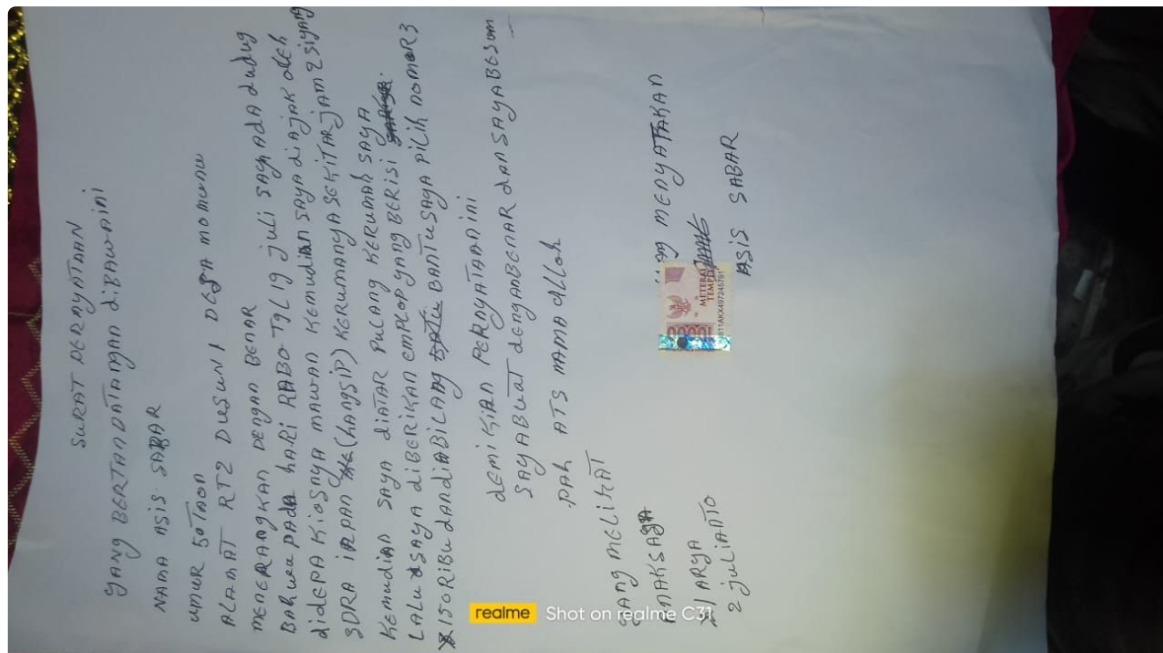 SURAT PERNYATAAN
YANG BERTANDATANGAN diBAWAINI
NAMA ASIS SABAR
UMUR 50TAON
ALAMAT RT2 DUSUN 1 DESA MOMUNU
MENERANGKAN DENGAN BENAR
BAHWA PADA HARI RABO TGL 19 juli SAYA ADA dudug
didEPA KIOSAYA MAWAN KEMUDIAN SAYA diAJAK OLEH
SDRA IRPAN (HANGSIP) KERUMANYA SEKITAR JAM 2 SIYANG
KEMUDIAN SAYA diATAR PULANG KERUMAH SAYA
LALU SAYA diBERIKAN EMPLOP YANG BERISI
150 RIBU dANdiABILANG BANTU SAYA PILIH NOMOR 3
dEMIKIAN PERNYATAAN ini
SAYA BUAT dENGAN BENAR dAN SAYA BESUM
PAH ATS NAMA ALLOH
YANG MELIHAT
ANAK SAYA
1 ARYA
2 juliANTO
YANG MENYATAKAN
METERAI
TEMPEL
10000
ASIS SABAR
realme Shot on realme C31